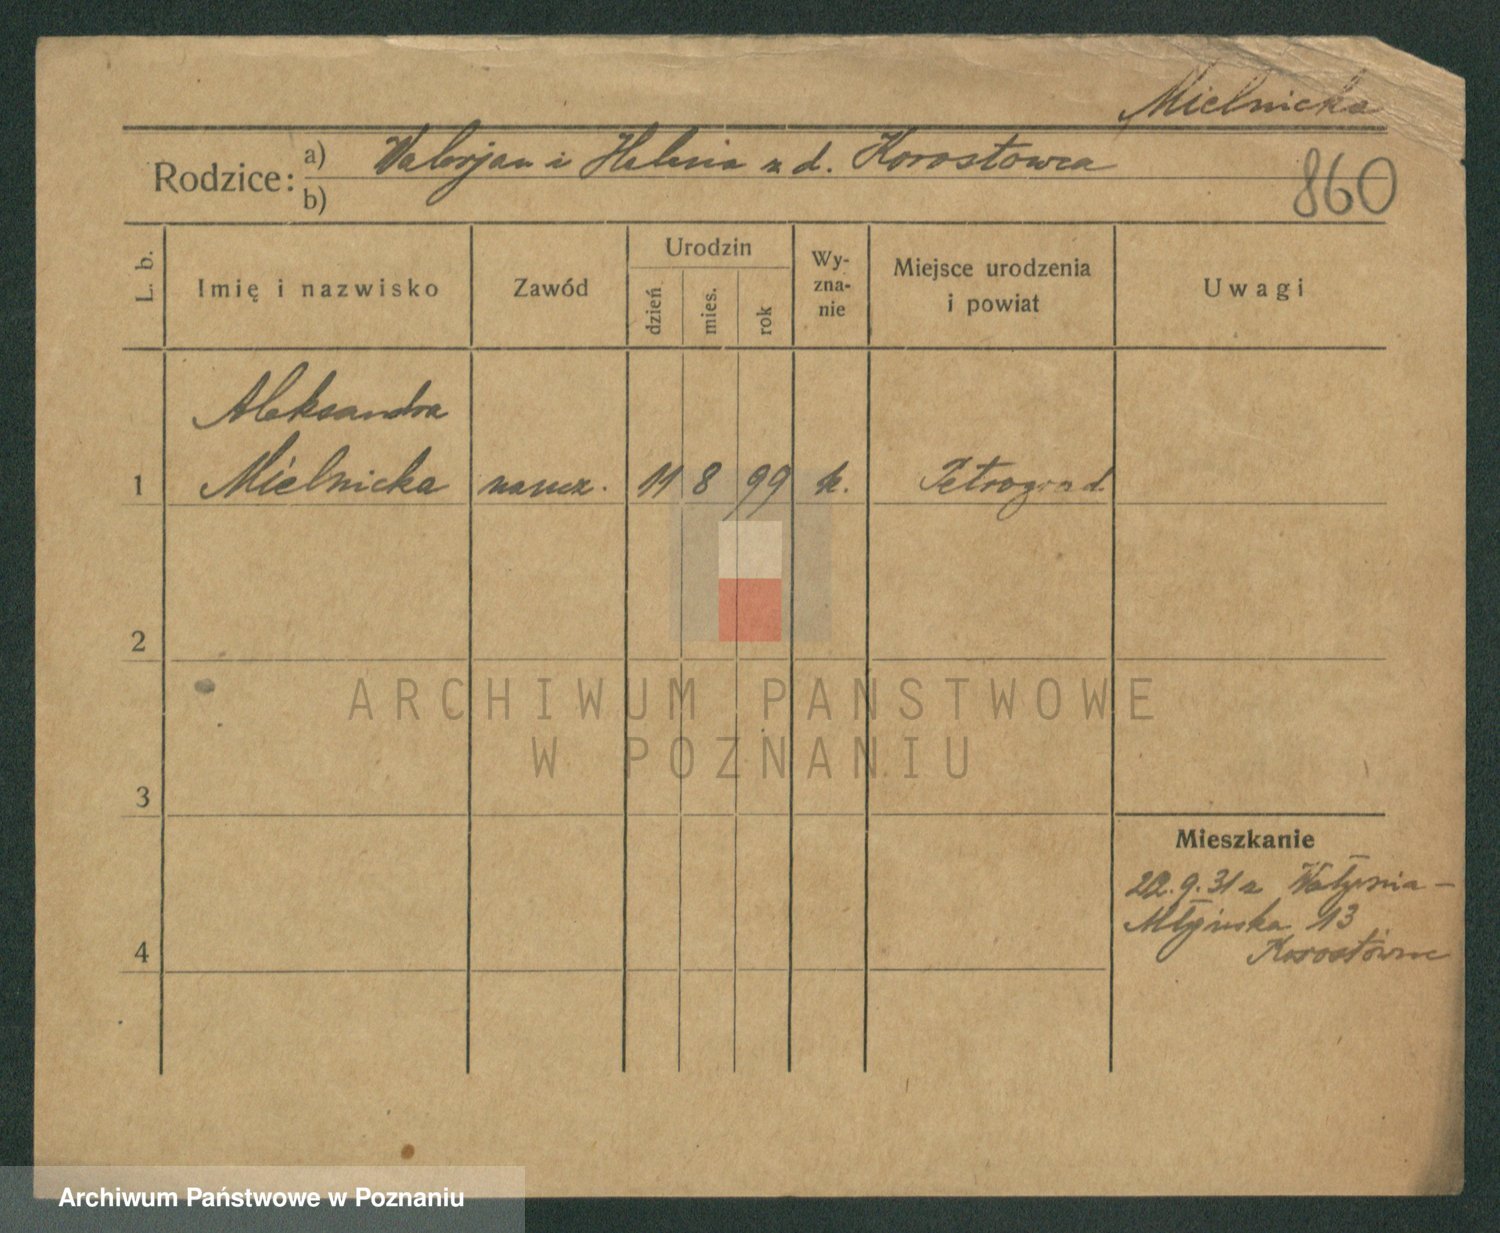 Mielnicka
Rodzice:
a) Walerjan i Helena z d. Korostowca
b)
860
L. b.
Imię i nazwisko
Zawód
Urodzin
dzień
mies.
rok
Wy-
zna-
nie
Miejsce urodzenia
i powiat
Uwagi
Aleksandra
1 Mielnicka naucz. 11 8 99 k. Petrograd
2
3
4
Mieszkanie
22.9.31 z
Młyńska 13
ARCHIWUM PAŃSTWOWE
W POZNANIU
Archiwum Państwowe w Poznaniu